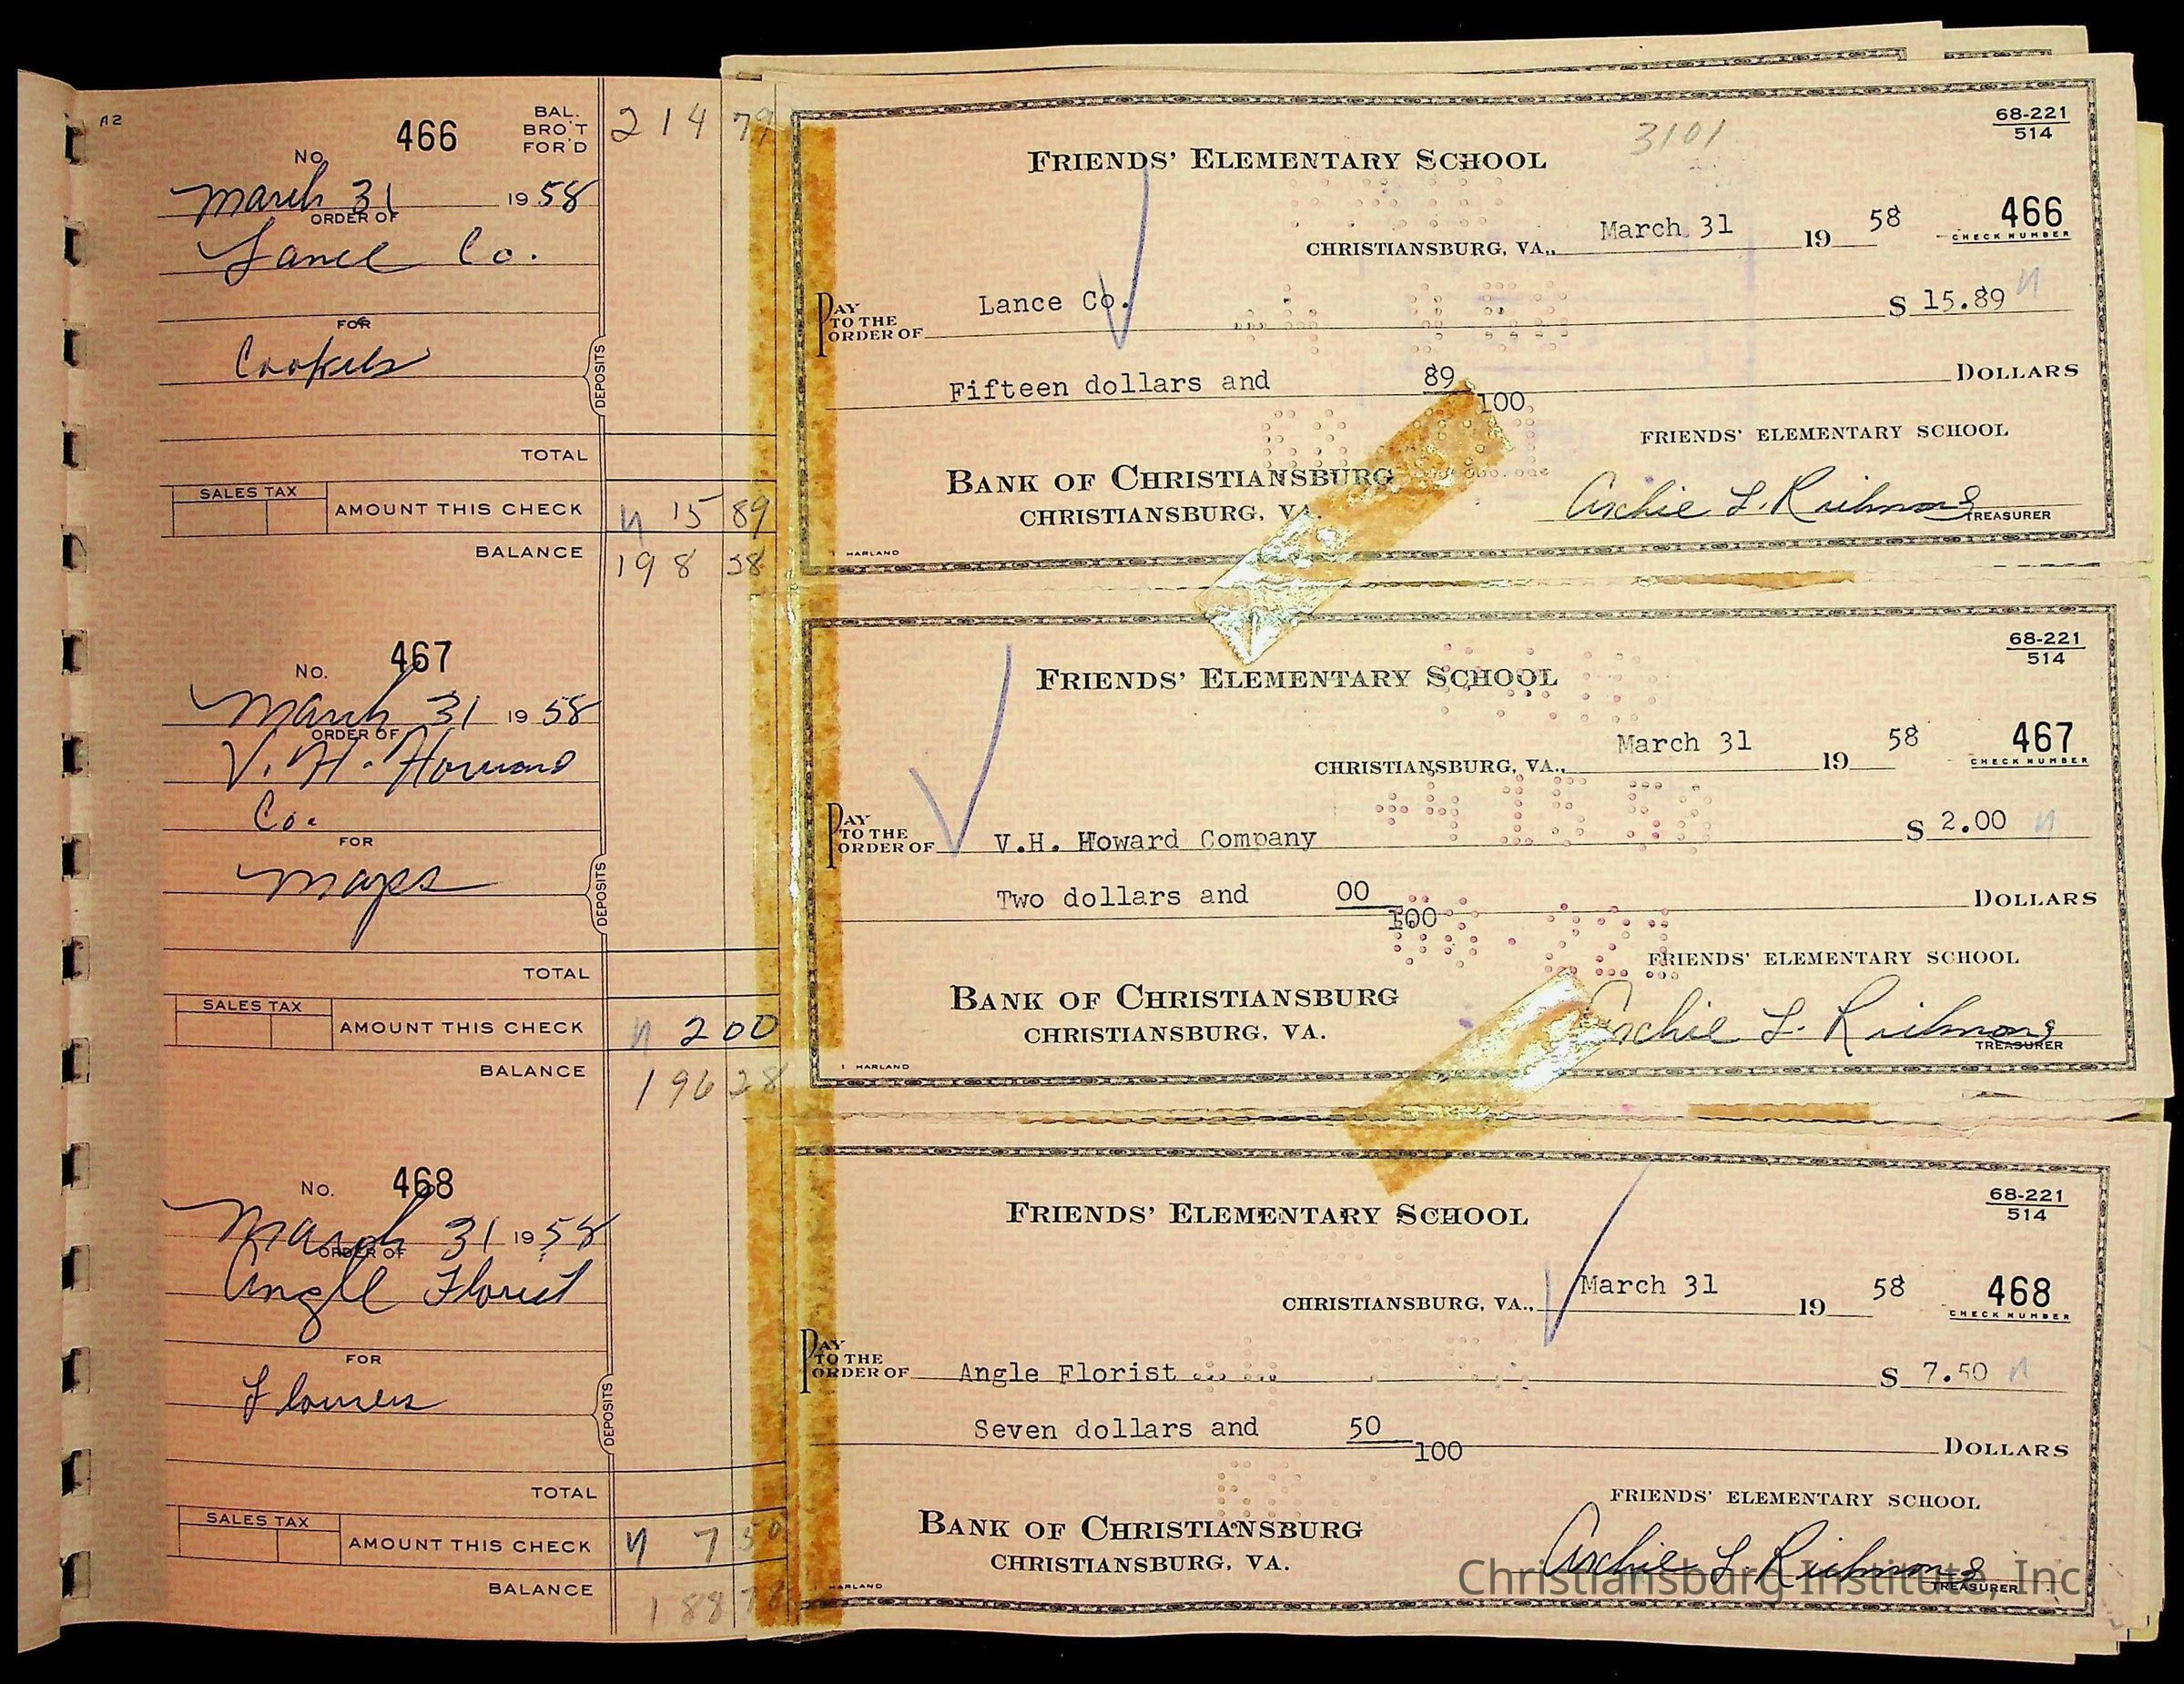 A2
No. 466 BAL. BRO'T FOR'D 214 79
March 31 19 58
ORDER OF
Lance Co.
FOR
DEPOSITS
TOTAL
SALES TAX AMOUNT THIS CHECK 15 89
BALANCE 198
No. 467
March 31 19 58
ORDER OF
V. H. Howard
Co.
FOR
Maps
DEPOSITS
TOTAL
SALES TAX AMOUNT THIS CHECK 2 00
BALANCE 196 28
No. 468
March 31 19 58
ORDER OF
Angle Florist
FOR
Flowers
DEPOSITS
TOTAL
SALES TAX AMOUNT THIS CHECK 7 50
BALANCE 188 78
3101
68-221
514
FRIENDS' ELEMENTARY SCHOOL
466
CHECK NUMBER
CHRISTIANSBURG, VA., March 31 19 58
PAY TO THE ORDER OF Lance Co. $ 15.89
Fifteen dollars and 89/100 DOLLARS
FRIENDS' ELEMENTARY SCHOOL
BANK OF CHRISTIANSBURG
CHRISTIANSBURG, VA.
Archie L. Richmond
TREASURER
HARLAND
68-221
514
FRIENDS' ELEMENTARY SCHOOL
467
CHECK NUMBER
CHRISTIANSBURG, VA., March 31 19 58
PAY TO THE ORDER OF V.H. Howard Company $ 2.00
Two dollars and 00/100 DOLLARS
FRIENDS' ELEMENTARY SCHOOL
BANK OF CHRISTIANSBURG
CHRISTIANSBURG, VA.
Archie L. Richmond
TREASURER
HARLAND
68-221
514
FRIENDS' ELEMENTARY SCHOOL
468
CHECK NUMBER
CHRISTIANSBURG, VA., March 31 19 58
PAY TO THE ORDER OF Angle Florist $ 7.50
Seven dollars and 50/100 DOLLARS
FRIENDS' ELEMENTARY SCHOOL
BANK OF CHRISTIANSBURG
CHRISTIANSBURG, VA.
Archie L. Richmond
TREASURER
HARLAND
Christiansburg Institute, Inc